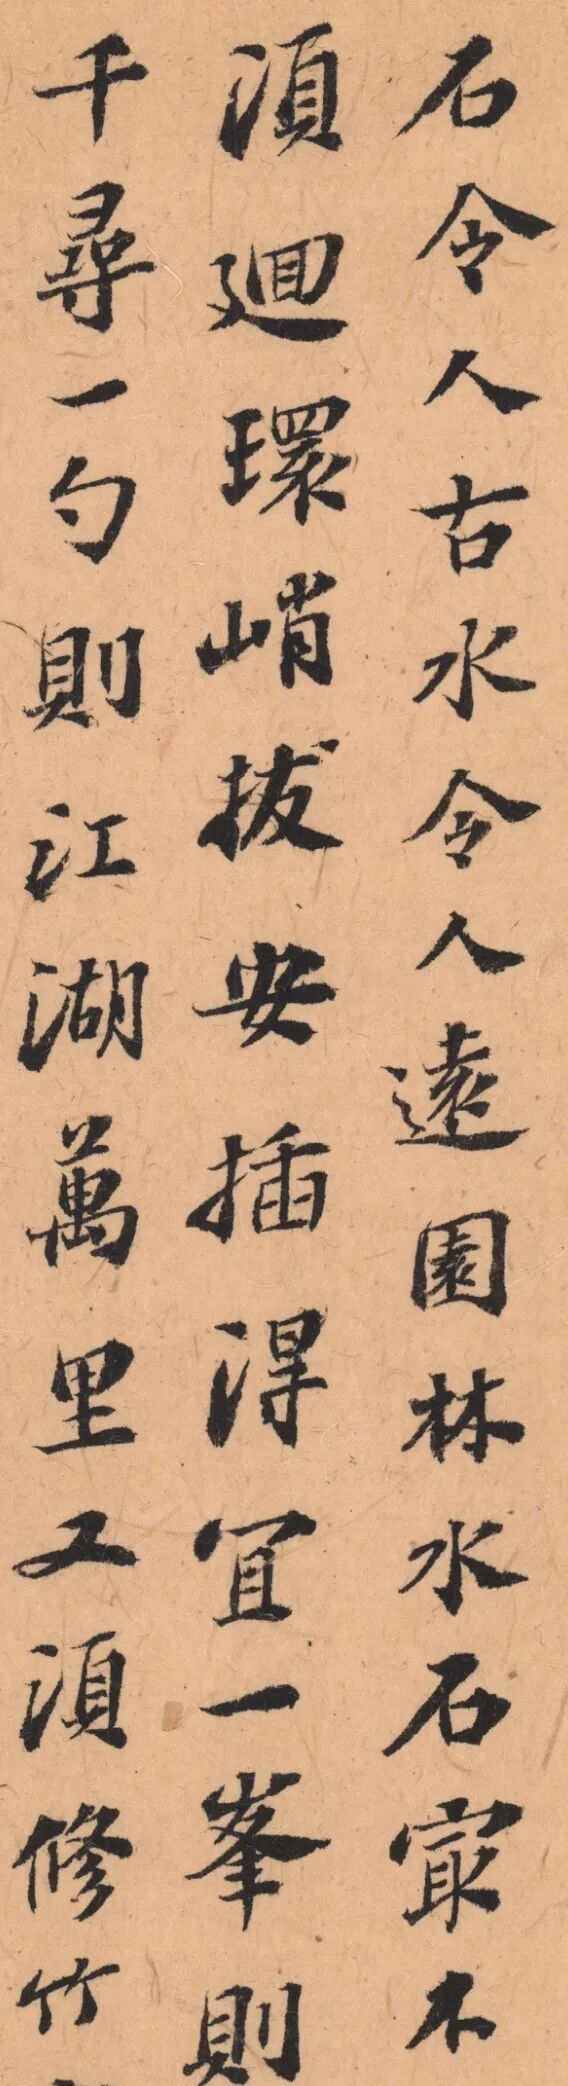 石令人古水令人遠園林水石寂不
須迴環峭拔安插得宜一峯則
千尋一勺則江湖萬里又須修竹